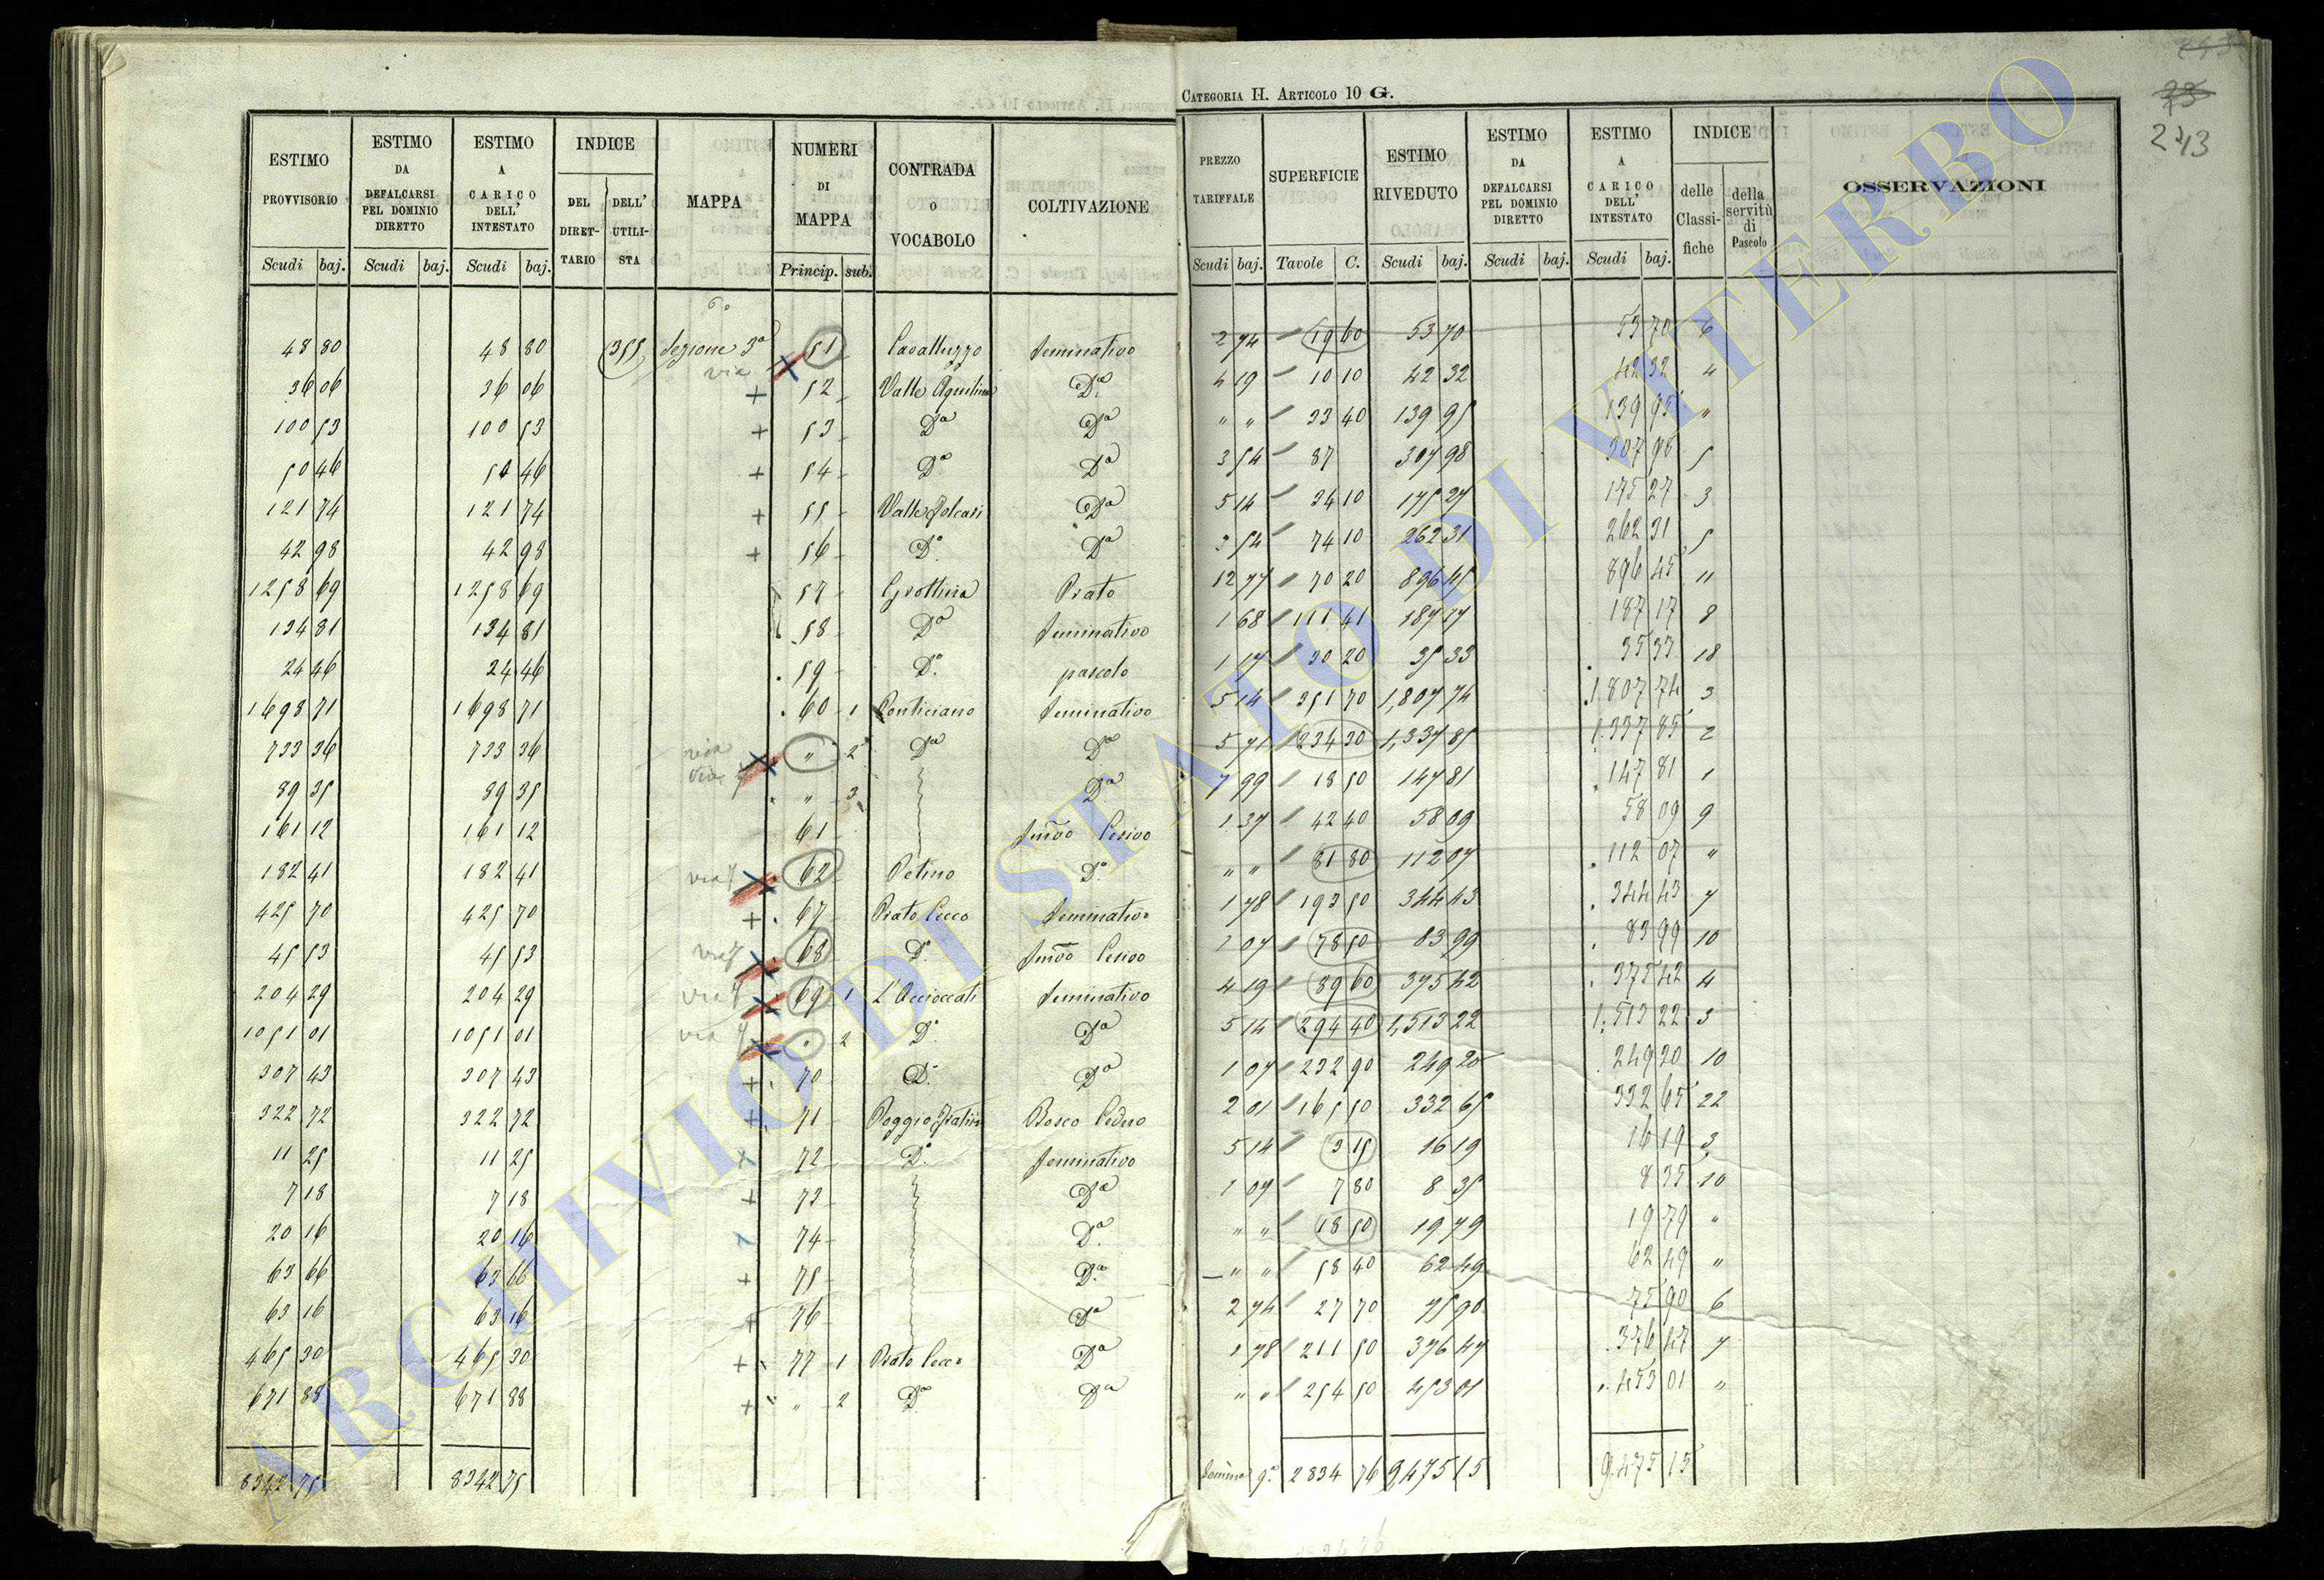 CATEGORIA H. ARTICOLO 10 G.
243
ESTIMO PROVVISORIO | ESTIMO DA DEFALCARSI PEL DOMINIO DIRETTO | ESTIMO A CARICO DELL' INTESTATO | INDICE | MAPPA | NUMERI DI MAPPA | CONTRADA o VOCABOLO | COLTIVAZIONE | PREZZO TARIFFALE | SUPERFICIE | ESTIMO RIVEDUTO | ESTIMO DA DEFALCARSI PEL DOMINIO DIRETTO | ESTIMO A CARICO DELL' INTESTATO | INDICE | OSSERVAZIONI
DEL DIRETTARIO | DELL' UTILISTA | delle Classifiche | della servitù di Pascolo
Scudi | baj. | Scudi | baj. | Scudi | baj. | Princip. | sub. | Scudi | baj. | Tavole | C. | Scudi | baj. | Scudi | baj. | Scudi | baj.
48 80 | 48 80 | 355 | Sezione 3ª | 51 | Cavalluzzo | Seminativo | 2 74 | 19 60 | 53 70 | 53 70 | 6
via
36 06 | 36 06 | + | 52 | Valle Aquilina | Dº | 4 19 | 10 10 | 42 32 | 42 32 | 4
100 53 | 100 53 | + | 53 | Dª | Dª | " " | 33 40 | 139 95 | 139 95 | "
50 46 | 50 46 | + | 54 | Dº | Dª | 3 54 | 87 | 307 98 | 307 98 | 5
121 74 | 121 74 | + | 55 | Valle | Dª | 5 14 | 34 10 | 175 27 | 175 27 | 3
42 98 | 42 98 | + | 56 | Dº | Dª | 3 54 | 74 10 | 262 31 | 262 31 | 5
1258 69 | 1258 69 | 57 | Prato | 12 77 | 70 20 | 896 45 | 896 45 | 11
134 81 | 134 81 | 58 | Dª | Seminativo | 1 68 | 111 41 | 187 17 | 187 17 | 8
24 46 | 24 46 | 59 | Dº | pascolo | 1 17 | 30 20 | 35 33 | 35 33 | 18
1698 71 | 1698 71 | 60 | 1 | Ponticiano | Seminativo | 5 14 | 351 70 | 1,807 74 | 1.807 74 | 3
733 36 | 733 36 | via | " | 2 | Dª | Dª | 5 71 | 234 30 | 1,337 85 | 1.337 85 | 2
89 35 | 89 35 | " | 3 | Dª | 7 99 | 18 50 | 147 81 | 147 81 | 1
161 12 | 161 12 | 61 | Semvo Cesivo | 1 37 | 42 40 | 58 09 | 58 09 | 9
182 41 | 182 41 | via | 62 | Petino | Dº | " " | 81 80 | 112 07 | 112 07 | "
425 70 | 425 70 | + | 67 | Prato Cecco | Seminativo | 1 78 | 193 50 | 344 43 | 344 43 | 7
45 53 | 45 53 | via | 68 | Dº | Semvo Cesivo | 1 07 | 78 50 | 83 99 | 83 99 | 10
204 29 | 204 29 | via | 69 | 1 | L'Accioccati | Seminativo | 4 19 | 89 60 | 375 42 | 375 42 | 4
1051 01 | 1051 01 | via | 2 | Dº | Dª | 5 14 | 294 40 | 1,513 22 | 1.513 22 | 3
307 43 | 307 43 | + | 70 | Dº | Dª | 1 07 | 232 90 | 249 20 | 249 20 | 10
322 72 | 322 72 | + | 71 | Poggio | Bosco Ceduo | 2 01 | 165 50 | 332 65 | 332 65 | 22
11 25 | 11 25 | + | 72 | Dº | Seminativo | 5 14 | 3 15 | 16 19 | 16 19 | 3
7 18 | 7 18 | + | 73 | Dª | 1 07 | 7 80 | 8 35 | 8 35 | 10
20 16 | 20 16 | 74 | Dª | " " | 18 50 | 19 79 | 19 79 | "
63 66 | 63 66 | + | 75 | Dª | " " | 58 40 | 62 49 | 62 49 | "
63 16 | 63 16 | + | 76 | Dª | 2 74 | 27 70 | 75 90 | 75 90 | 6
465 30 | 465 30 | + | 77 | 1 | Prato Cecco | Dª | 1 78 | 211 50 | 376 47 | 376 47 | 7
671 88 | 671 88 | + | " | 2 | Dº | Dª | " " | 254 50 | 453 01 | 453 01 | "
8342 75 | 8342 75 | Somma | 2834 76 | 9,475 15 | 9.475 15
ARCHIVIO DI STATO DI VITERBO